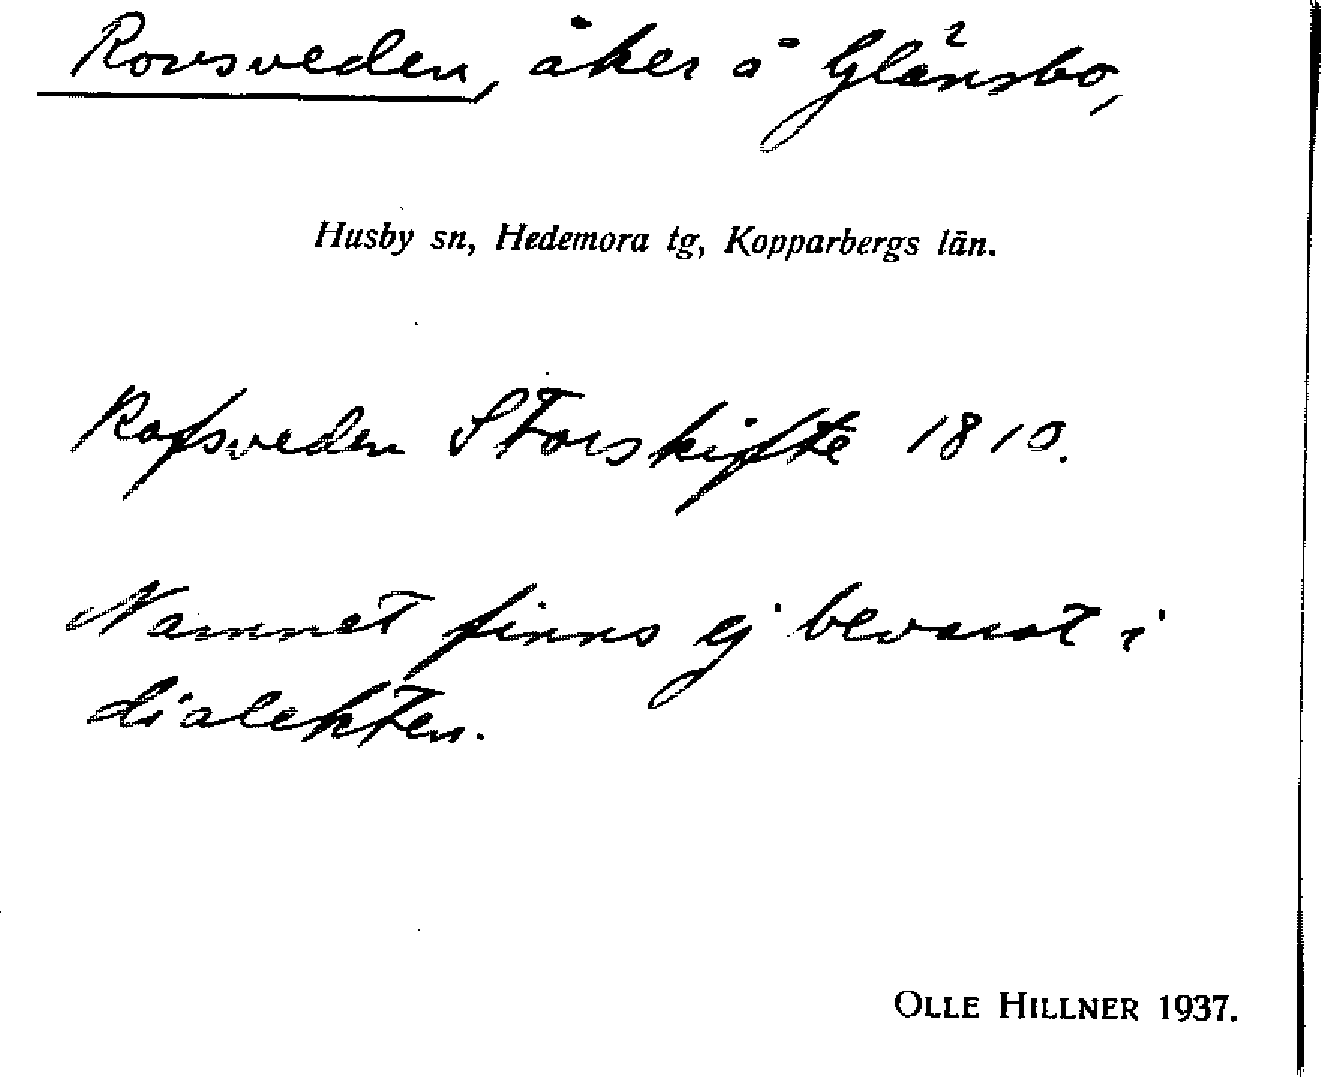 Rovsveden, åker å Glänsbo,
Husby sn, Hedemora tg, Kopparbergs län.
Rofsveden Storskifte 1810.
Namnet finns ej bevarat i
dialekten.
OLLE HILLNER 1937.